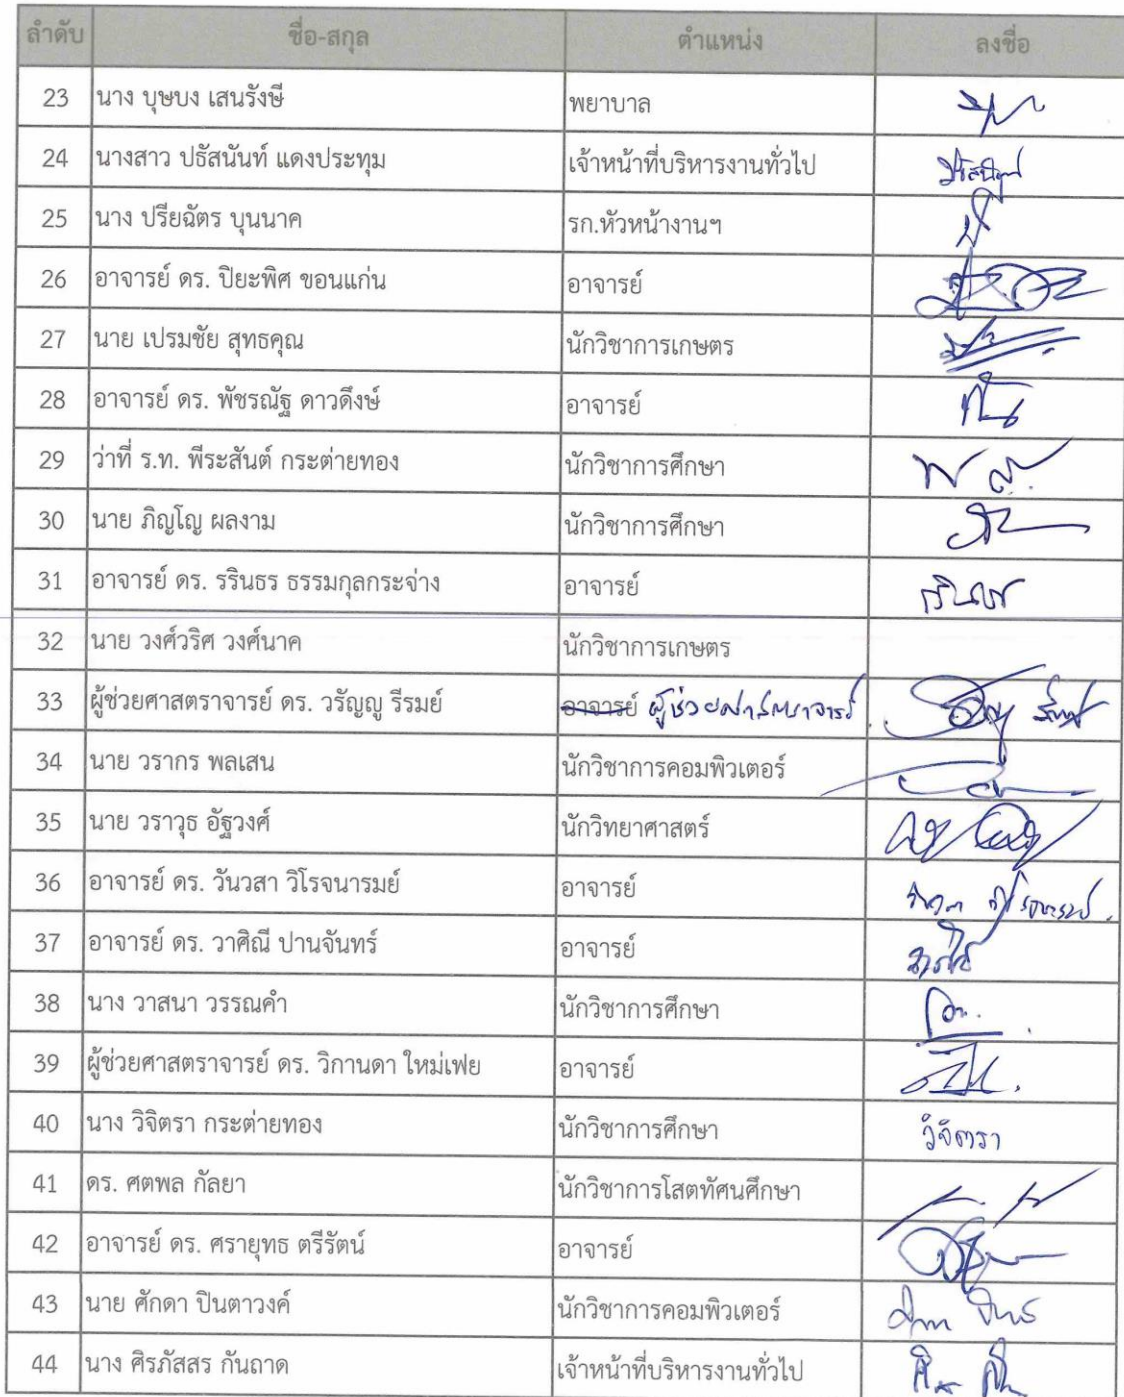 ลำดับ ชื่อ-สกุล ตำแหน่ง ลงชื่อ
23 นาง บุษบง เสนรังษี พยาบาล
24 นางสาว ปธัสนันท์ แดงประทุม เจ้าหน้าที่บริหารงานทั่วไป
25 นาง ปรียฉัตร บุนนาค รก.หัวหน้างานฯ
26 อาจารย์ ดร. ปิยะพิศ ขอนแก่น อาจารย์
27 นาย เปรมชัย สุทธคุณ นักวิชาการเกษตร
28 อาจารย์ ดร. พัชรณัฐ ดาวดึงษ์ อาจารย์
29 ว่าที่ ร.ท. พีระสันต์ กระต่ายทอง นักวิชาการศึกษา
30 นาย ภิญโญ ผลงาม นักวิชาการศึกษา
31 อาจารย์ ดร. รรินธร ธรรมกุลกระจ่าง อาจารย์
32 นาย วงศ์วริศ วงศ์นาค นักวิชาการเกษตร
33 ผู้ช่วยศาสตราจารย์ ดร. วรัญญู รีรมย์ อาจารย์ ผู้ช่วยศาสตราจารย์
34 นาย วรากร พลเสน นักวิชาการคอมพิวเตอร์
35 นาย วราวุธ อัฐวงศ์ นักวิทยาศาสตร์
36 อาจารย์ ดร. วันวสา วิโรจนารมย์ อาจารย์
37 อาจารย์ ดร. วาศิณี ปานจันทร์ อาจารย์
38 นาง วาสนา วรรณคำ นักวิชาการศึกษา
39 ผู้ช่วยศาสตราจารย์ ดร. วิกานดา ใหม่เฟย อาจารย์
40 นาง วิจิตรา กระต่ายทอง นักวิชาการศึกษา วิจิตรา
41 ดร. ศตพล กัลยา นักวิชาการโสตทัศนศึกษา
42 อาจารย์ ดร. ศรายุทธ ตรีรัตน์ อาจารย์
43 นาย ศักดา ปินตาวงค์ นักวิชาการคอมพิวเตอร์
44 นาง ศิรภัสสร กันถาด เจ้าหน้าที่บริหารงานทั่วไป